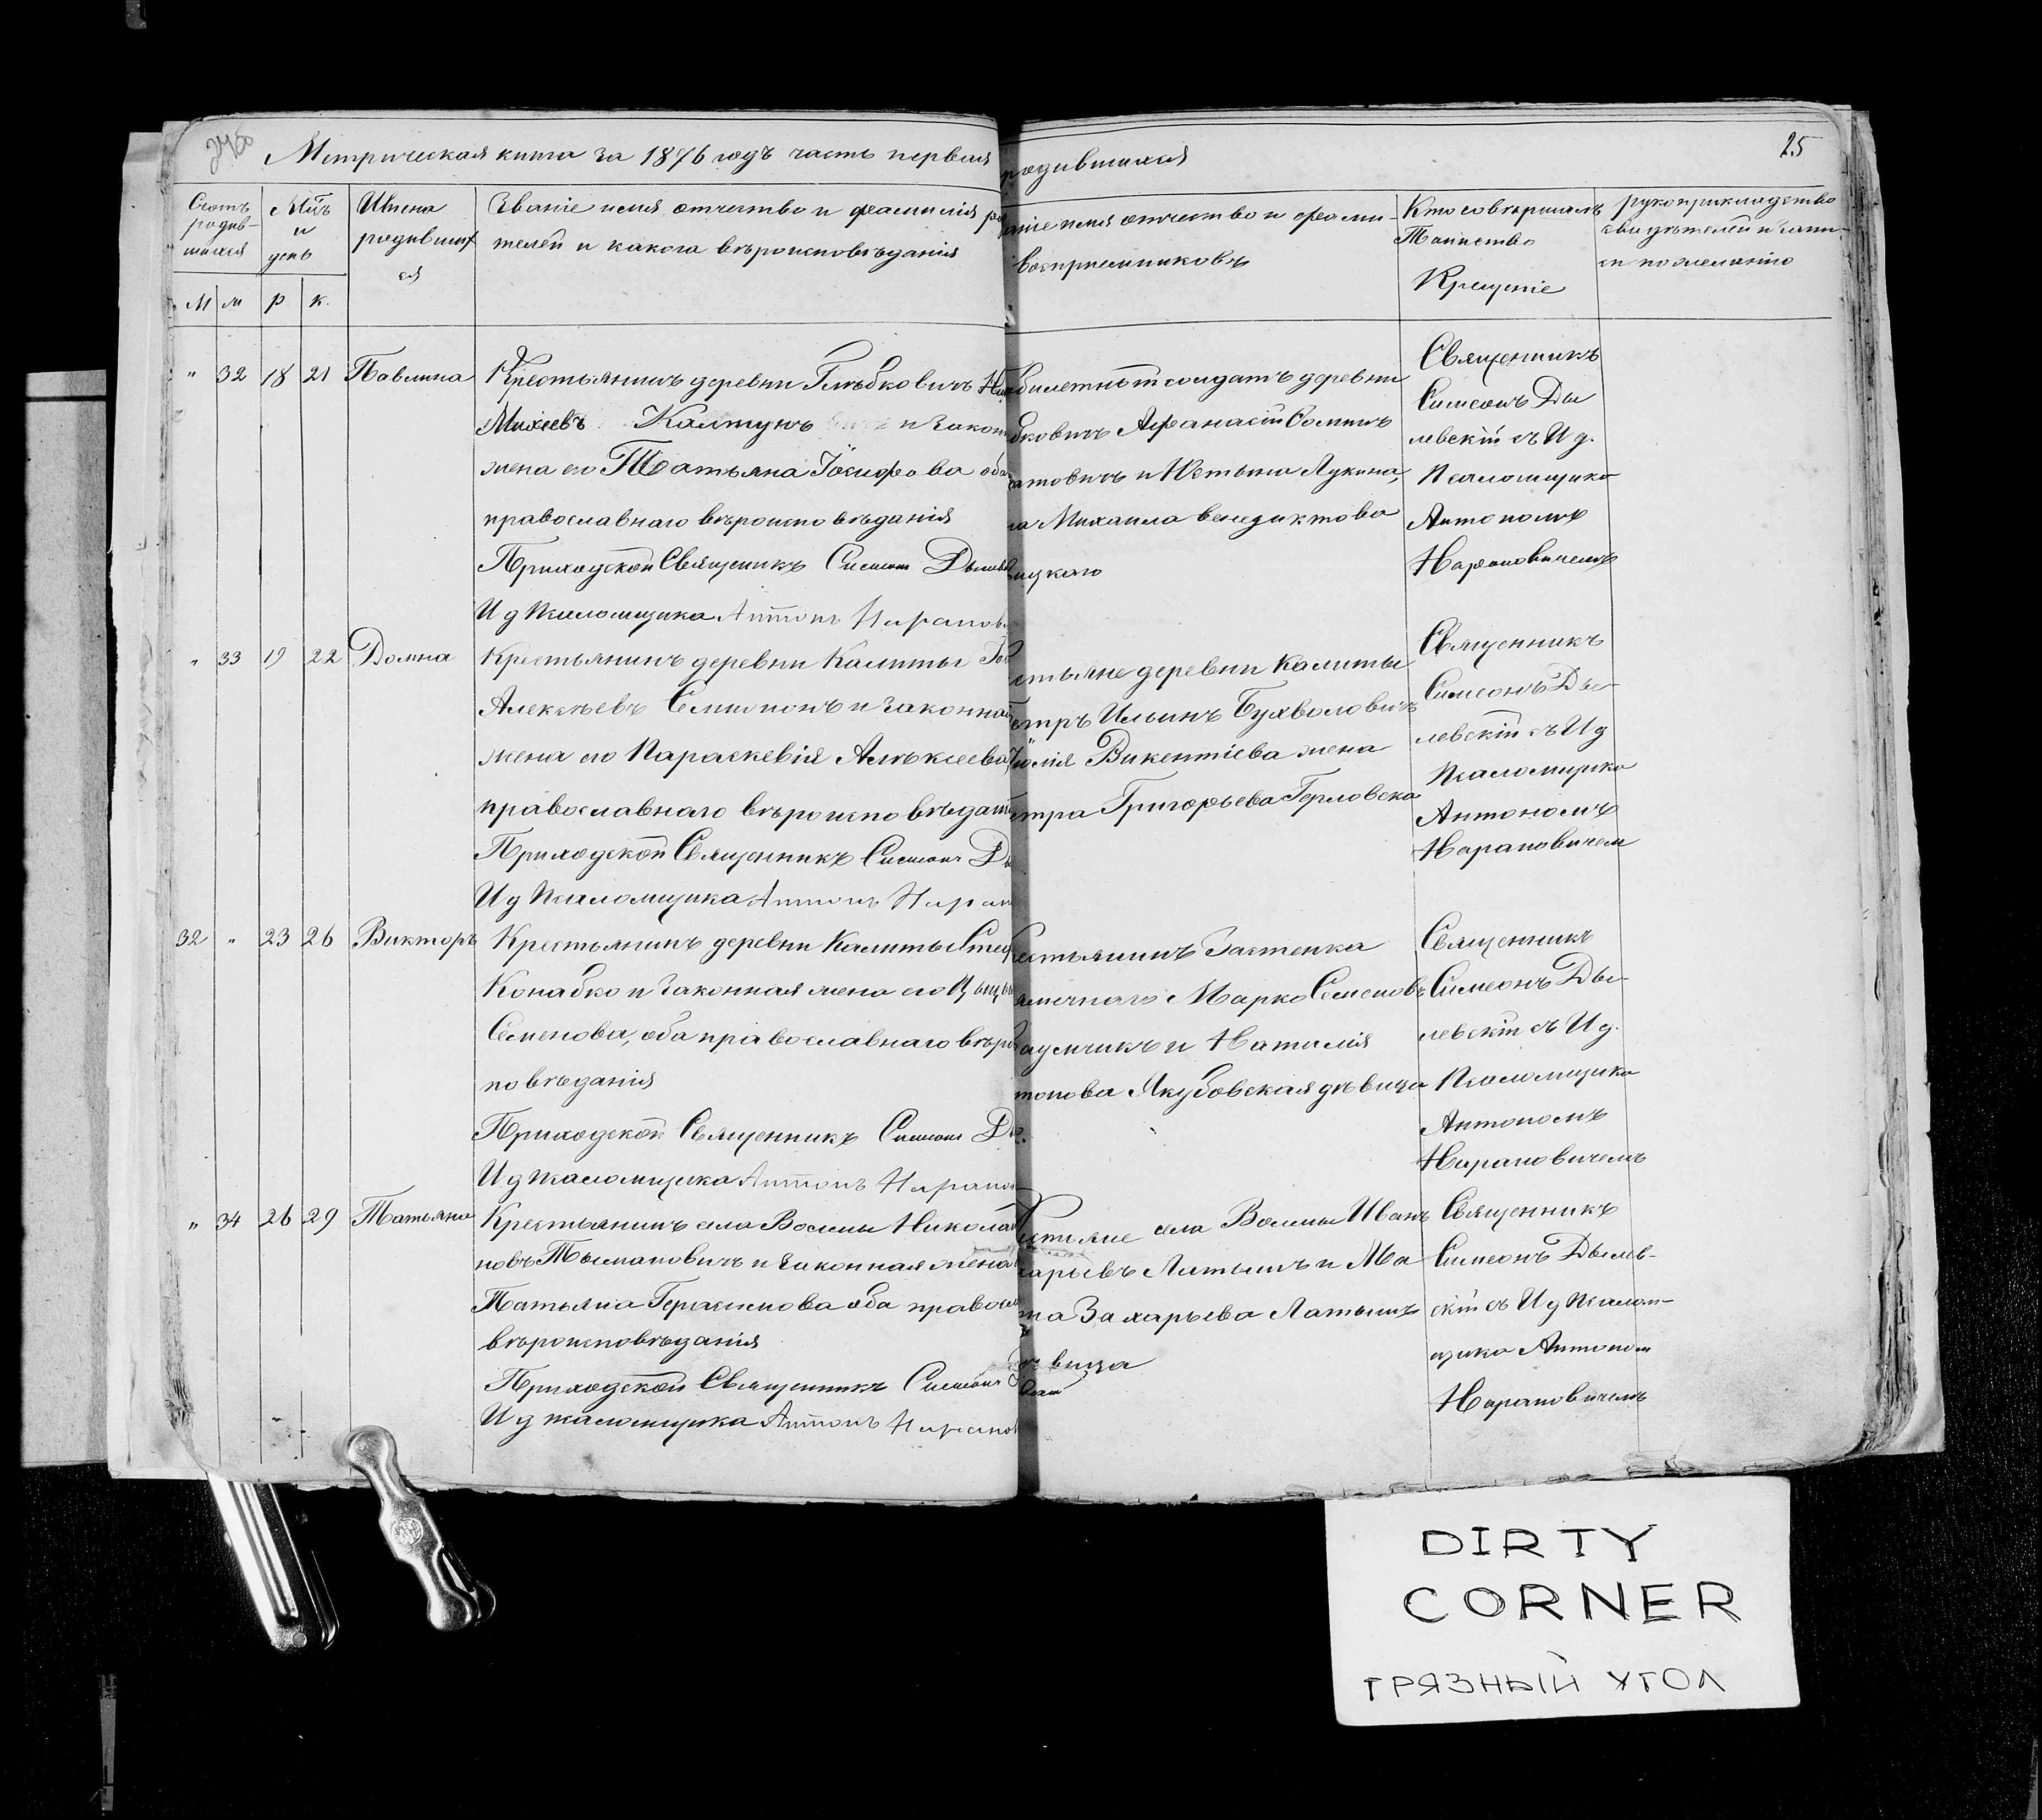 Метрическая книга за 1876 годъ часть первая родившихся
25
Счетъ родив-шихся
М м
Мцъ и день
р к.
Имена родившихся
Званіе имя отчество и фамилія ро
телей и какога вѣроисповѣданія
аніе имя отчество и фами-
воспріемниковъ
Кто совершалъ
Таинство
Крещеніе
рукоприкладство
свидѣтелей и запи-
си по желанію
" 32 18 21 Павлина
Крестьянинъ деревни Глѣбковичъ
Михеевъ Калтунъ и закон
жена его Татьяна Іосифова оба
православнаго вѣроисповѣданія
Приходской Священникъ Симеон Дылев
И д Псаломщика Антонъ Наранов
билетной солдатъ деревни
бковичъ Афанасій Соминъ
атовичъ и Юстына Лукина,
на Михаила венедиктова
ицкаго
Священникъ
Симеонъ Ды
левскій съ И д.
Псаломщика
Антономъ
Нарановичемъ
" 33 19 22 Домна
Крестьянинъ деревни Калиты
Алексѣевъ Семионъ и законная
жена его Параскевія Алѣксеева
православнаго вѣроисповѣдані
Приходской Священникъ Симеон Ды
И д Псаломщика Антонъ Наран
стьяне деревни Калиты
етръ Ильинъ Бухваловичъ
Викентіева жена
етра Григорьева Герловска
Священникъ
Симеонъ Ды-
левскій съ И д
Псаломщика
Антономъ
Нарановичем
32 " 23 26 Викторъ
Крестьянинъ деревни Калиты Стеф
Конабко и законная жена его
Семенова, оба православнаго вѣрои
повѣданія
Приходской Священникъ Симеон Ды
И д псаломщика Антонъ Наранов
естьянинъ Застенка
Марко Семеновъ
аумчикъ и Наталія
тонова Якубовская дѣвица
Священникъ
Симеонъ Ды-
левскій съ И д.
Псаломщика
Антономъ
Нарановичемъ
" 34 26 29 Татьяна
Крестьянинъ села Волмы Никола
новъ Тысмановичъ и законная жена
Татьяна Герасимова оба правосл
вѣроисповѣданія
Приходской Священникъ Симеонъ
И д псаломщика Антонъ Наранов
стьяне села Волмы Иванъ
харьевъ Латышъ и Ма
та Захарьева Латышъ
вица
Священникъ
Симеонъ Дылев-
скій съ И д Псалом-
щика Антоном
Нарановичемъ
DIRTY
CORNER
ГРЯЗНЫЙ УГОЛ